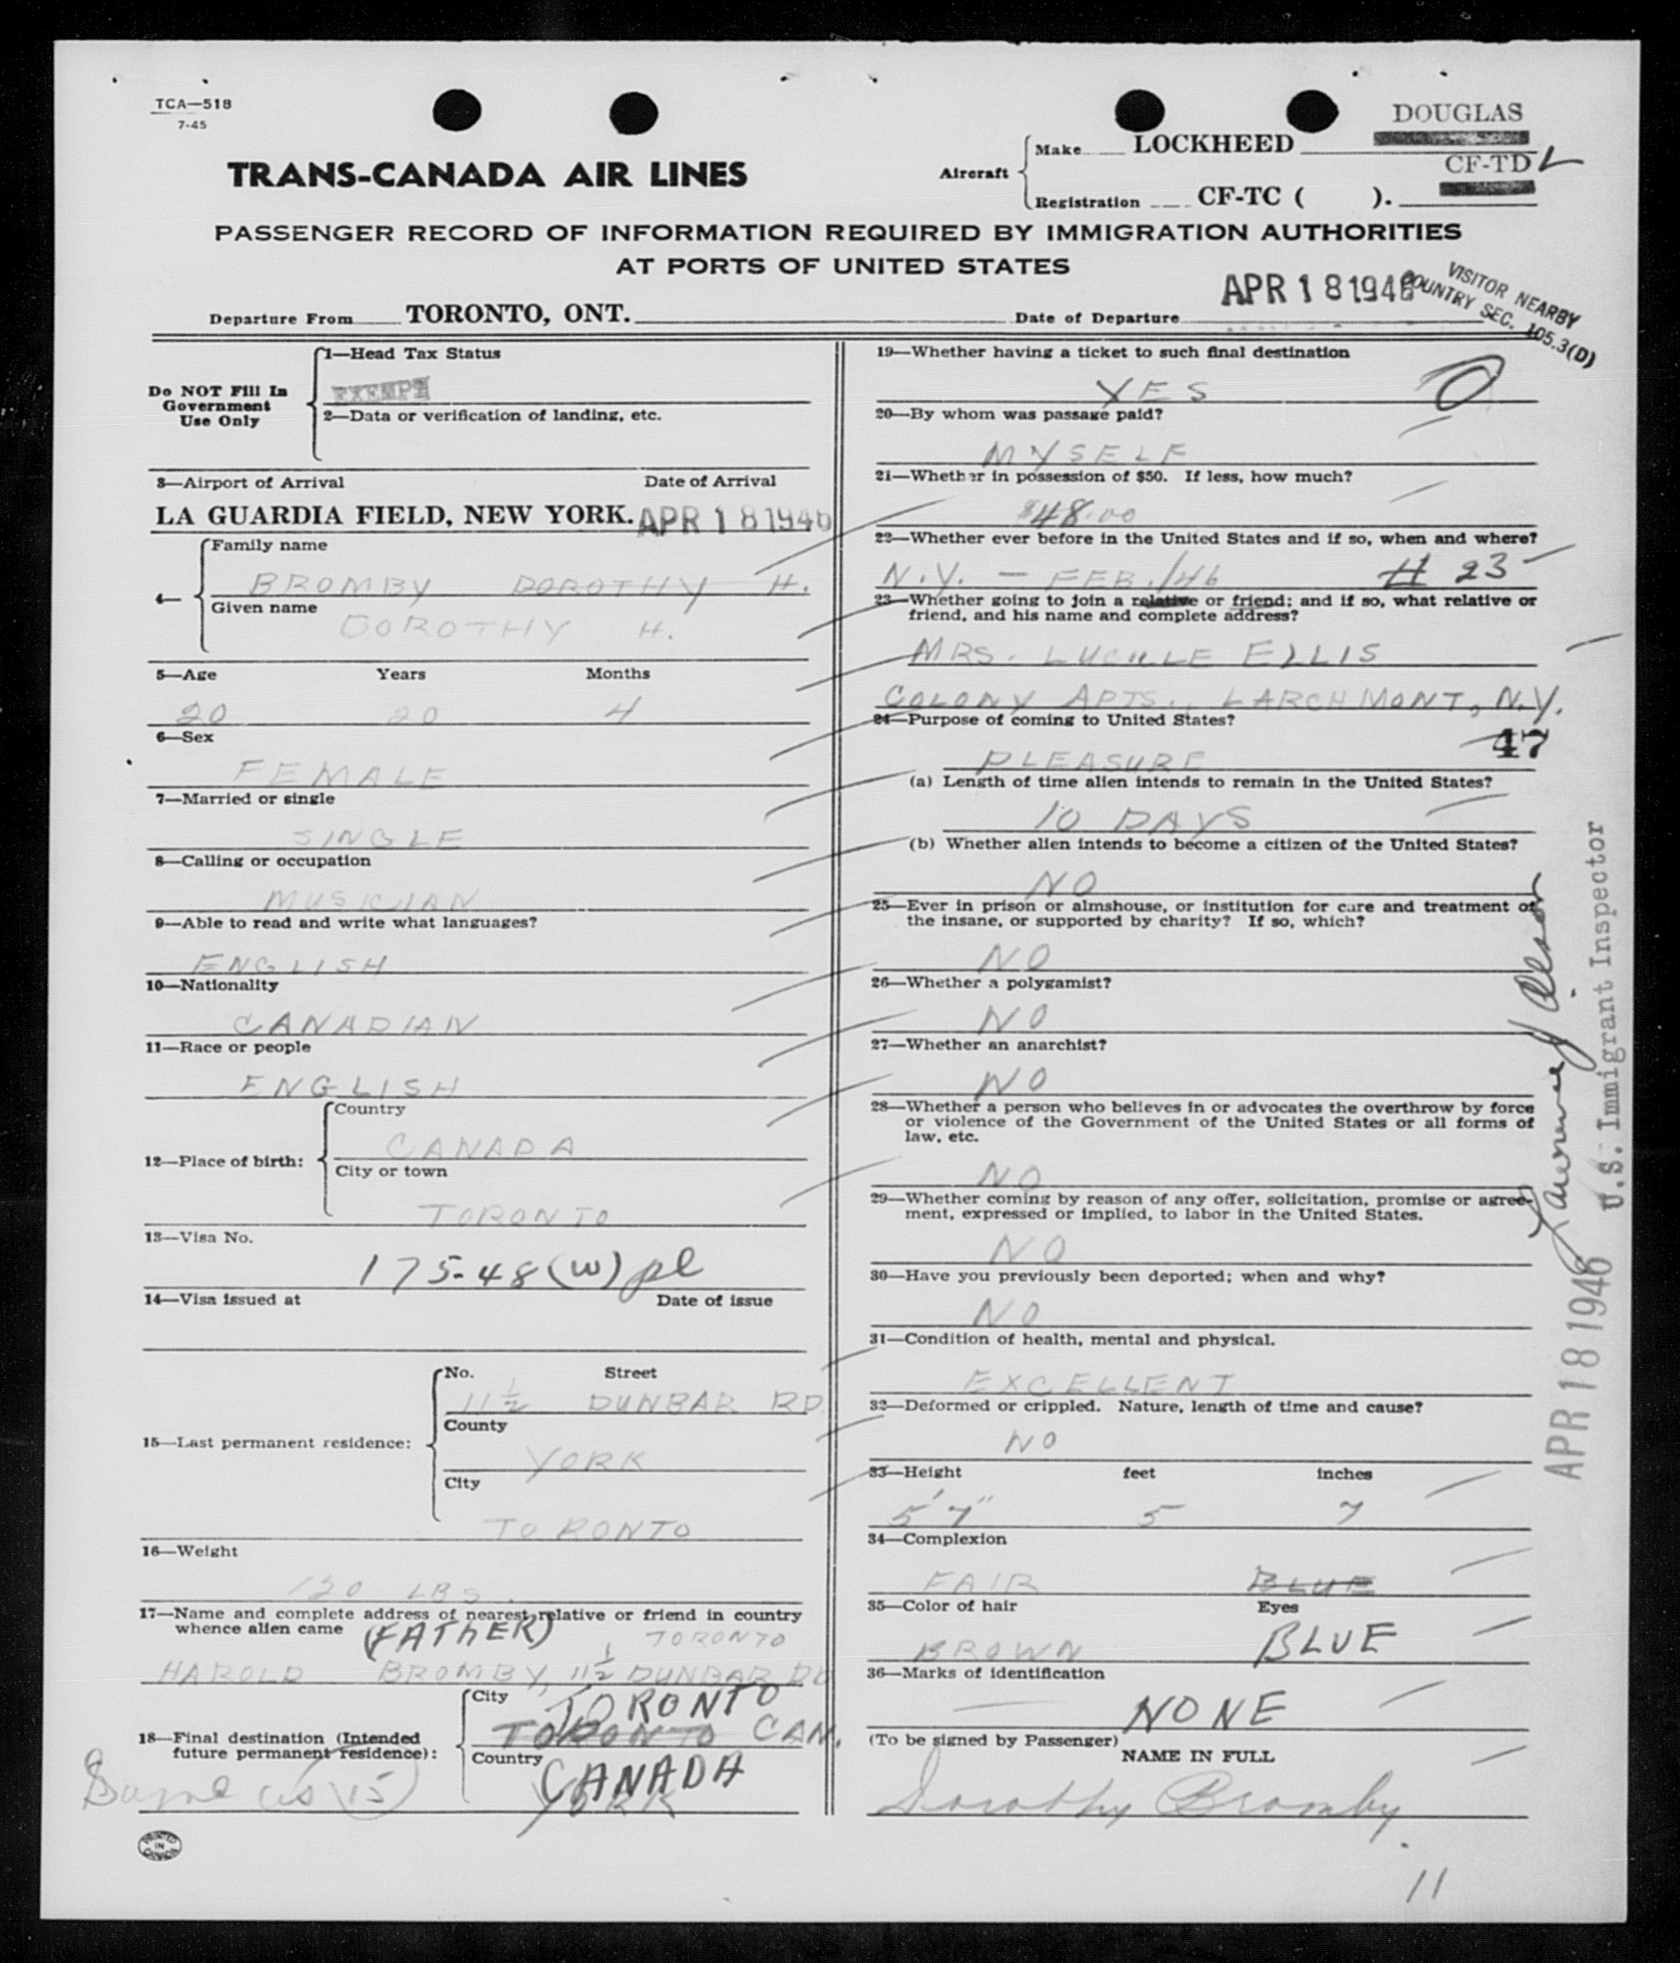 TCA—518
7-45
DOUGLAS
Aircraft
Make LOCKHEED
CF-TD L
Registration CF-TC ( ).
TRANS-CANADA AIR LINES
PASSENGER RECORD OF INFORMATION REQUIRED BY IMMIGRATION AUTHORITIES
AT PORTS OF UNITED STATES
Departure From TORONTO, ONT.
Date of Departure APR 18 1946
VISITOR NEARBY
COUNTRY SEC. 105.3(D)
Do NOT Fill In
Government
Use Only
1—Head Tax Status
EXEMPT
2—Data or verification of landing, etc.
3—Airport of Arrival Date of Arrival
LA GUARDIA FIELD, NEW YORK. APR 18 1946
4—
Family name
BROMBY DOROTHY H.
Given name
DOROTHY H.
5—Age Years Months
20 20 4
6—Sex
FEMALE
7—Married or single
SINGLE
8—Calling or occupation
MUSICIAN
9—Able to read and write what languages?
ENGLISH
10—Nationality
CANADIAN
11—Race or people
ENGLISH
12—Place of birth:
Country
CANADA
City or town
TORONTO
13—Visa No.
175-48 (W) pl
14—Visa issued at Date of issue
15—Last permanent residence:
No. Street
11 ½ DUNBAR RD
County
YORK
City
TORONTO
16—Weight
120 LBS.
17—Name and complete address of nearest relative or friend in country
whence alien came (FATHER) TORONTO
HAROLD BROMBY, 11 ½ DUNBAR RD
18—Final destination (Intended
future permanent residence):
Same as 15
City
TORONTO
TORONTO CAN.
Country
CANADA
YORK
PRINTED
IN
CANADA
19—Whether having a ticket to such final destination
YES
20—By whom was passage paid?
MYSELF
21—Whether in possession of $50. If less, how much?
$48.00
22—Whether ever before in the United States and if so, when and where?
N.Y. — FEB./46 H 23
23—Whether going to join a relative or friend; and if so, what relative or
friend, and his name and complete address?
MRS. LUCILLE ELLIS
COLONY APTS., LARCHMONT, N.Y.
24—Purpose of coming to United States?
47
PLEASURE
(a) Length of time alien intends to remain in the United States?
10 DAYS
(b) Whether alien intends to become a citizen of the United States?
NO
25—Ever in prison or almshouse, or institution for care and treatment of
the insane, or supported by charity? If so, which?
NO
26—Whether a polygamist?
NO
27—Whether an anarchist?
NO
28—Whether a person who believes in or advocates the overthrow by force
or violence of the Government of the United States or all forms of
law, etc.
NO
29—Whether coming by reason of any offer, solicitation, promise or agree-
ment, expressed or implied, to labor in the United States.
NO
30—Have you previously been deported; when and why?
NO
31—Condition of health, mental and physical.
EXCELLENT
32—Deformed or crippled. Nature, length of time and cause?
NO
33—Height feet inches
5'7" 5 7
34—Complexion
FAIR BLUE
35—Color of hair Eyes
BROWN BLUE
36—Marks of identification
NONE
(To be signed by Passenger)
NAME IN FULL
Dorothy Bromby
11
U.S. Immigrant Inspector
APR 18 1946